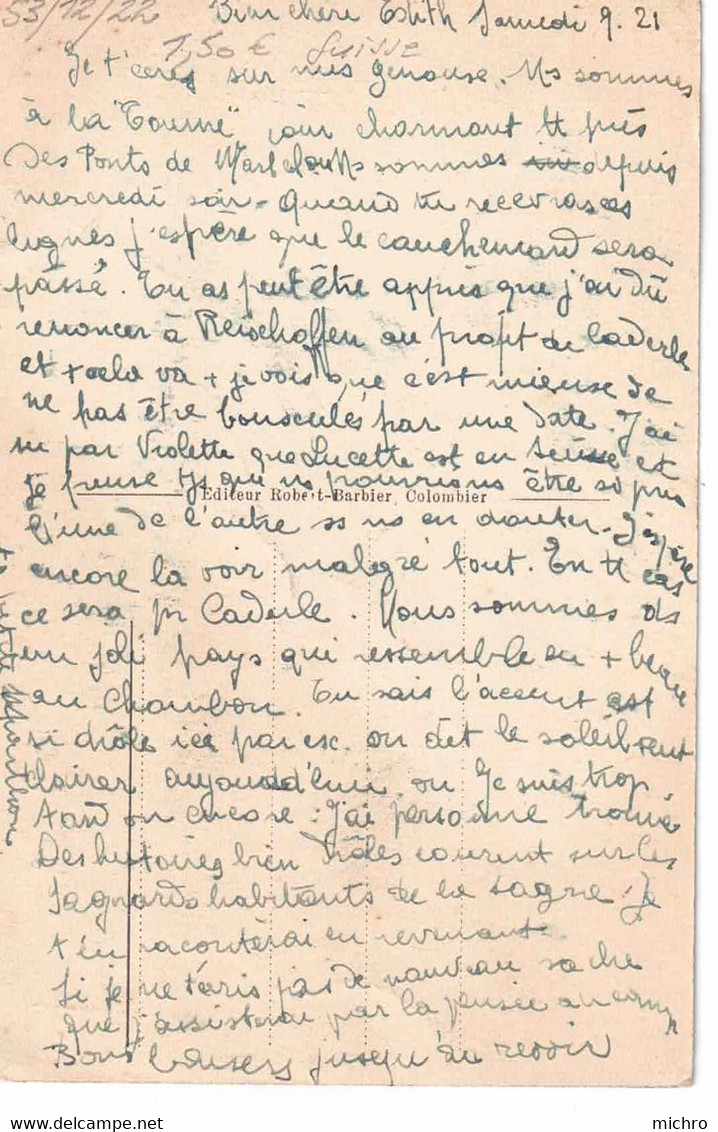 53/12/22
Bien chère Edith Samedi 9.21
1,50 € Suisse
Je t'ecris sur mes genoux. Ns sommes
à la "Tourne" coin charmant tt près
des Ponts de Martel où ns sommes depuis
mercredi soir - Quand tu recevras ces
lignes j'espère que le cauchemard sera
passé. Tu as peut être appris que j'ai dû
renoncer à Reischoffen au projet de Caderle
et + cela va + je vois que c'est mieux de
ne pas être bousculés par une date. J'ai
su par Violette que Lucette est en Suisse et
je pense que ns pourrions être si près
Editeur Robert-Barbier, Colombier
l'une de l'autre ss ns en douter. J'espère
encore la voir malgré tout. En tt cas
ce sera pr Caderle. Nous sommes ds
un joli pays qui ressemble en + beau
au Chambon. Tu sais l'accent est
si drôle ici par ex. on dit le soleil veut
clairer aujourd'hui ou Je suis trop
tard ou encore : J'ai personne trouvé
Des histoires bien drôles courent sur les
Sagnards habitants de la Sagne. Je
t'en raconterai en revenant
Si je ne t'écris pas de nouveau sache
que j'assisterai par la pensée au
Bons baisers jusqu'au revoir
michro